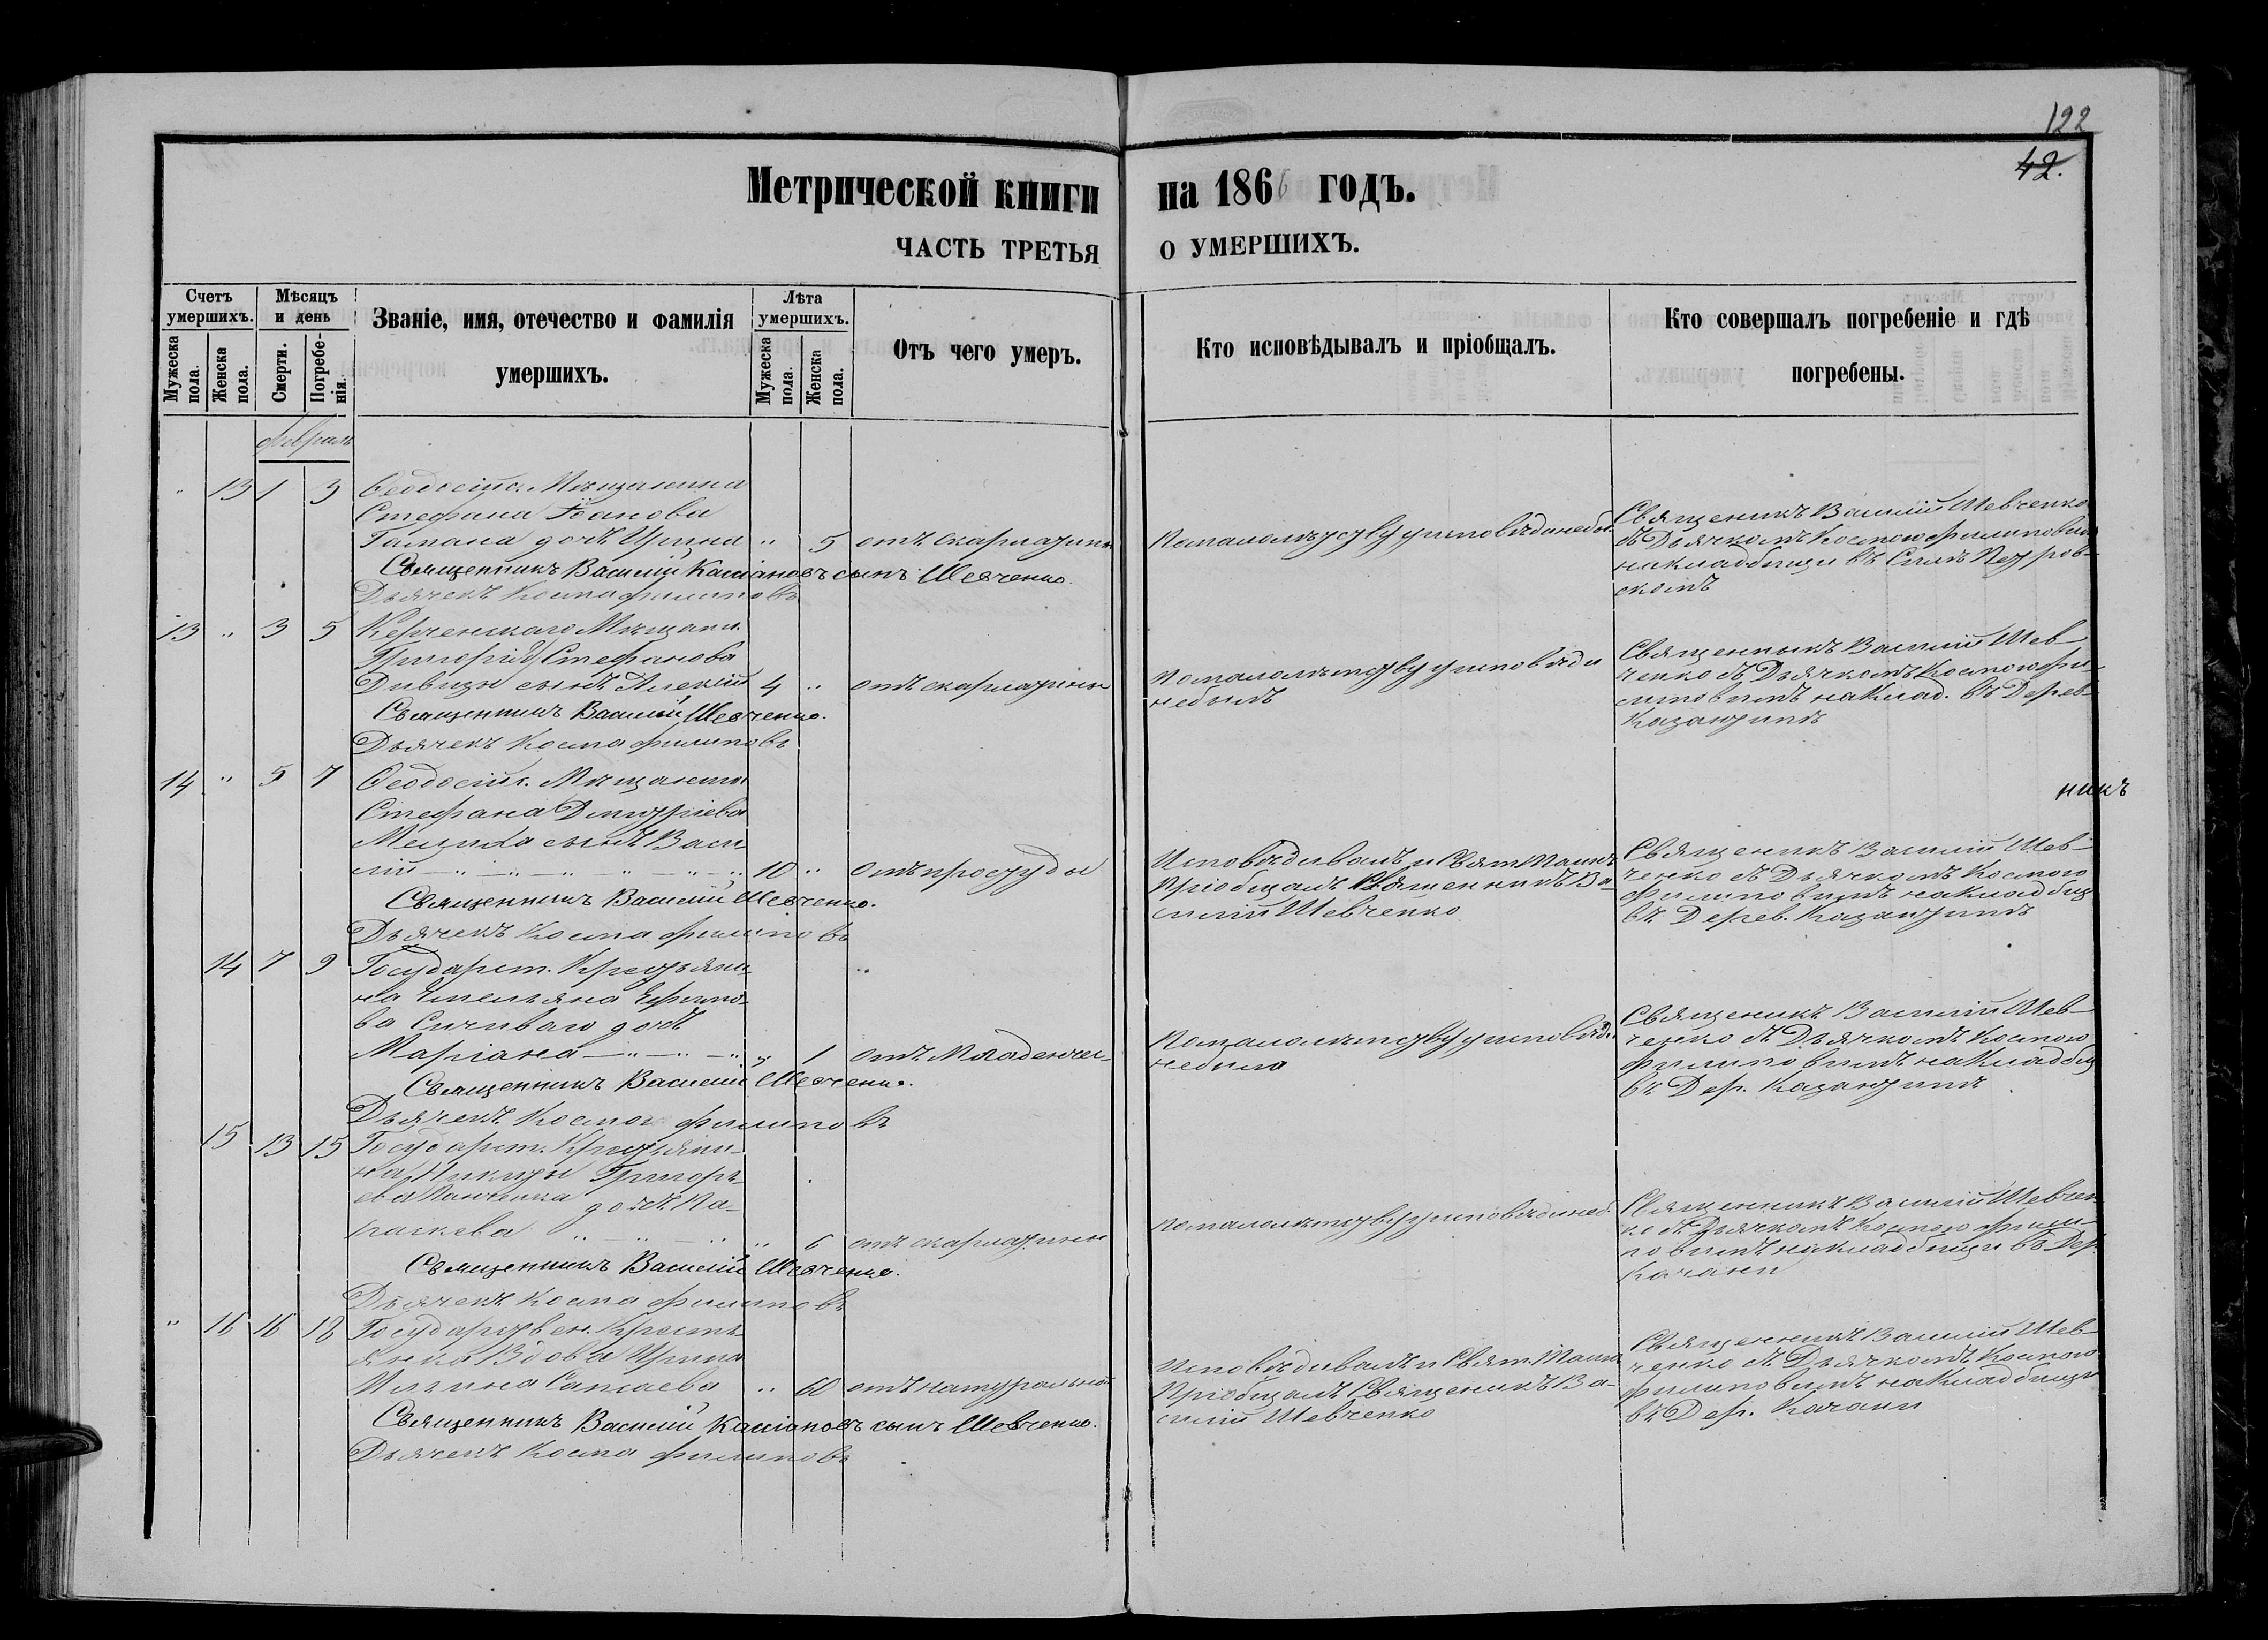 122
42.
Метрической книги на 1866 годъ.
ЧАСТЬ ТРЕТЬЯ О УМЕРШИХЪ.
Счетъ умершихъ.
Мужеска пола.
Женска пола.
Мѣсяцъ и день
Смерти.
Погребенія.
Званіе, имя, отечество и фамилія умершихъ.
Лѣта умершихъ.
Мужеска пола.
Женска пола.
Отъ чего умеръ.
Кто исповѣдывалъ и пріобщалъ.
Кто совершалъ погребеніе и гдѣ погребены.
Февраль
" 13 1 3 Ѳеодосійс. Мѣщанина
Стефана
дочь Ирина " 5 отъ скарлатины
Священникъ Василій Касіановъ сынъ Шевченко.
Дьячекъ Косма Филиповъ
По малолѣтству у исповѣди не бы.
Священикъ Василій Шевченко
съ Дьячкомъ Космою Филиповим
на кладбищи въ Селѣ Петров-
скомъ
13 " 3 5 Керченскаго Мѣщани.
Григорія Стефанова
сынъ Алексій 4 " отъ скарлатины
Священникъ Василій Шевченко.
Дьячекъ Косма Филиповъ
По малолѣтству у исповѣди
небылъ
Священныкъ Василій Шев-
ченко съ Дьячкомъ Космою Фи-
липовимъ на Клад. въ Дерев
Казантипѣ
14 " 5 7 Ѳеодосійс. Мѣщанина
Стефана Дмитріева
сынъ Васи
лій 10 " Отъ простуды
Священникъ Василій Шевченко.
Дьячекъ Косма Филиповъ
Исповѣдивалъ и Свят. Таинъ
Пріобщалъ Священникъ Ва-
силій Шевченко
никъ
Священикъ Василій Шев-
ченко съ Дьячкомъ Космою
Филиповимъ на кладбищ
въ Дерев. Казантипѣ
14 7 9 Государст. Крестьяни-
на Емельяна Ефимо-
ва дочь
Маріана " 1 отъ Младенчес
Священникъ Василій Шевченко.
Дьячекъ Косма Филиповъ
По малолѣтству у исповѣди
небила
Священикъ Василій Шев-
ченко съ Дьячкомъ Космою
Филиповимъ на Кладбищ
въ Дер. Казантипѣ
15 13 15 Государст. Крестьяни-
на Никиты Григорь-
ева дочь Па-
раскева " 6 отъ скарлатины
Священникъ Василій Шевченко.
Дьячекъ Косма Филиповъ
По малолѣтству у исповѣди неб.
Священникъ Василій Шевчен
ко съ Дьячкомъ Космою Фили-
повимъ на кладбищи въ Дер.
Качани
" 16 16 18 Государствен. Кресть-
янка Вдова Ирина
" 60 отъ натуральной
Священникъ Василій Касіановъ сынъ Шевченко.
Дьячекъ Косма Филиповъ
Исповѣдивалъ и Свят. Таинъ
Пріобщалъ Священикъ Ва-
силій Шевченко
Священникъ Василій Шев-
ченко съ Дьячкомъ Космою
Филиповимъ на Кладбищи
въ Дер. Качани